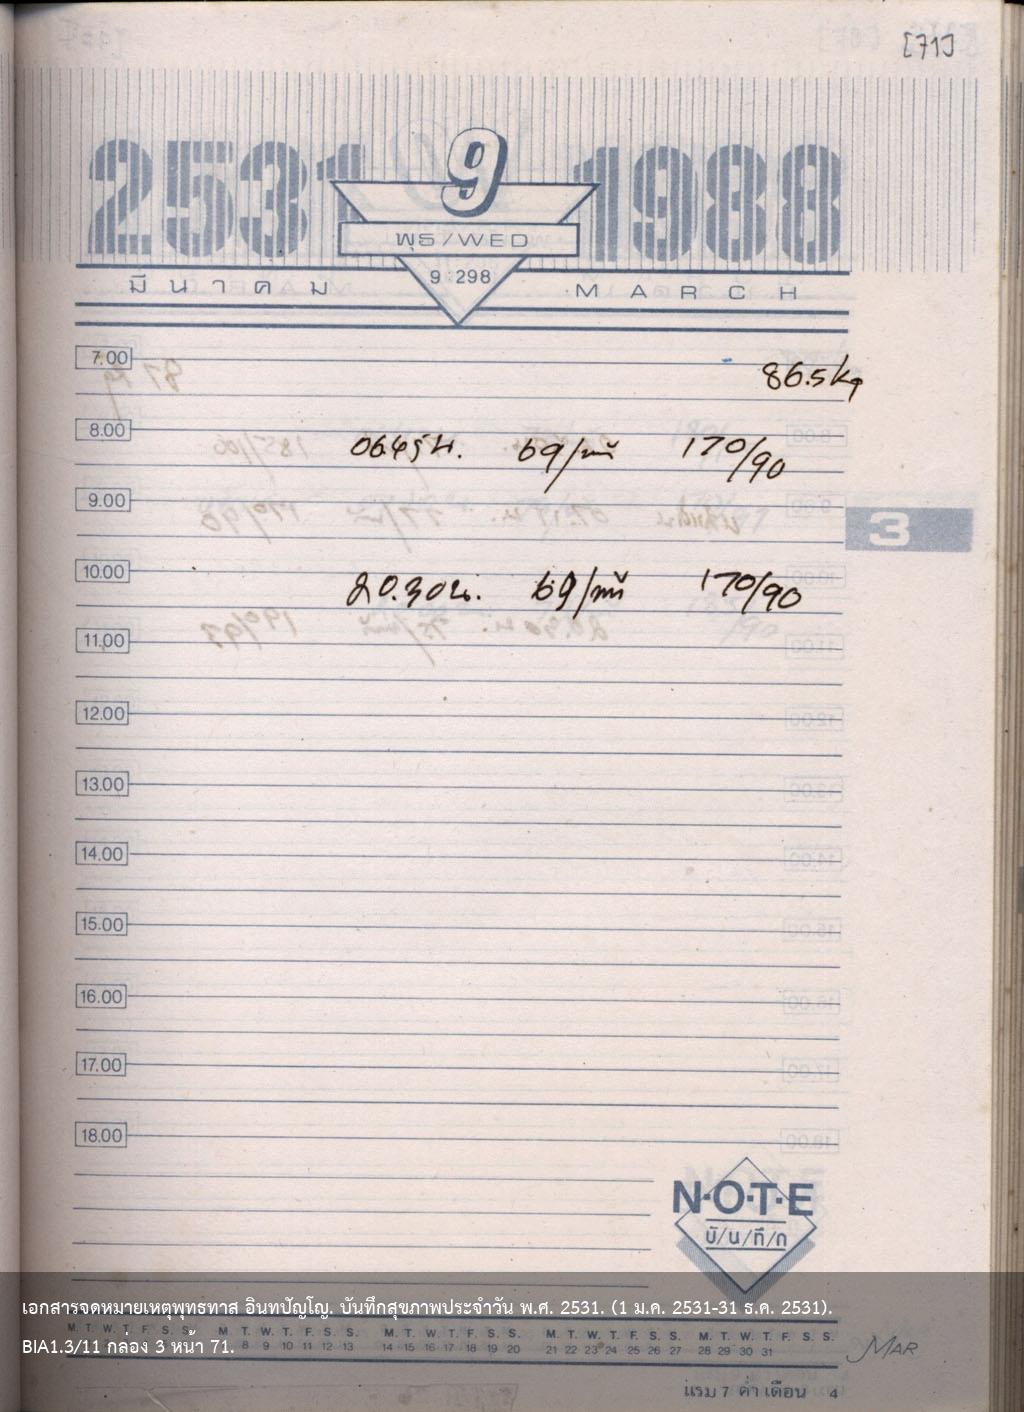 [71]
2531 9 1988
พุธ/WED
9:298
มีนาคม MARCH
7.00
86.5kg
8.00
06.45 น. 69/นาที 170/90
9.00
3
10.00
20.30 น. 69/นาที 170/90
11.00
12.00
13.00
14.00
15.00
16.00
17.00
18.00
N·O·T·E
บั/น/ทึ/ก
เอกสารจดหมายเหตุพุทธทาส อินทปัญโญ. บันทึกสุขภาพประจำวัน พ.ศ. 2531. (1 ม.ค. 2531-31 ธ.ค. 2531).
M. T. W. T. F. S. S. M. T. W. T. F. S. S. M. T. W. T. F. S. S. M. T. W. T. F. S. S. M. T. W. T. F. S. S.
BIA1.3/11 กล่อง 3 หน้า 71.
8 9 10 11 12 13 14 15 16 17 18 19 20 21 22 23 24 25 26 27 28 29 30 31
MAR
แรม 7 ค่ำ เดือน 4